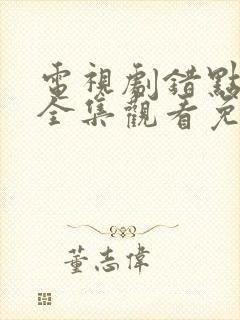 電視劇錯點
全集觀看免
董志偉